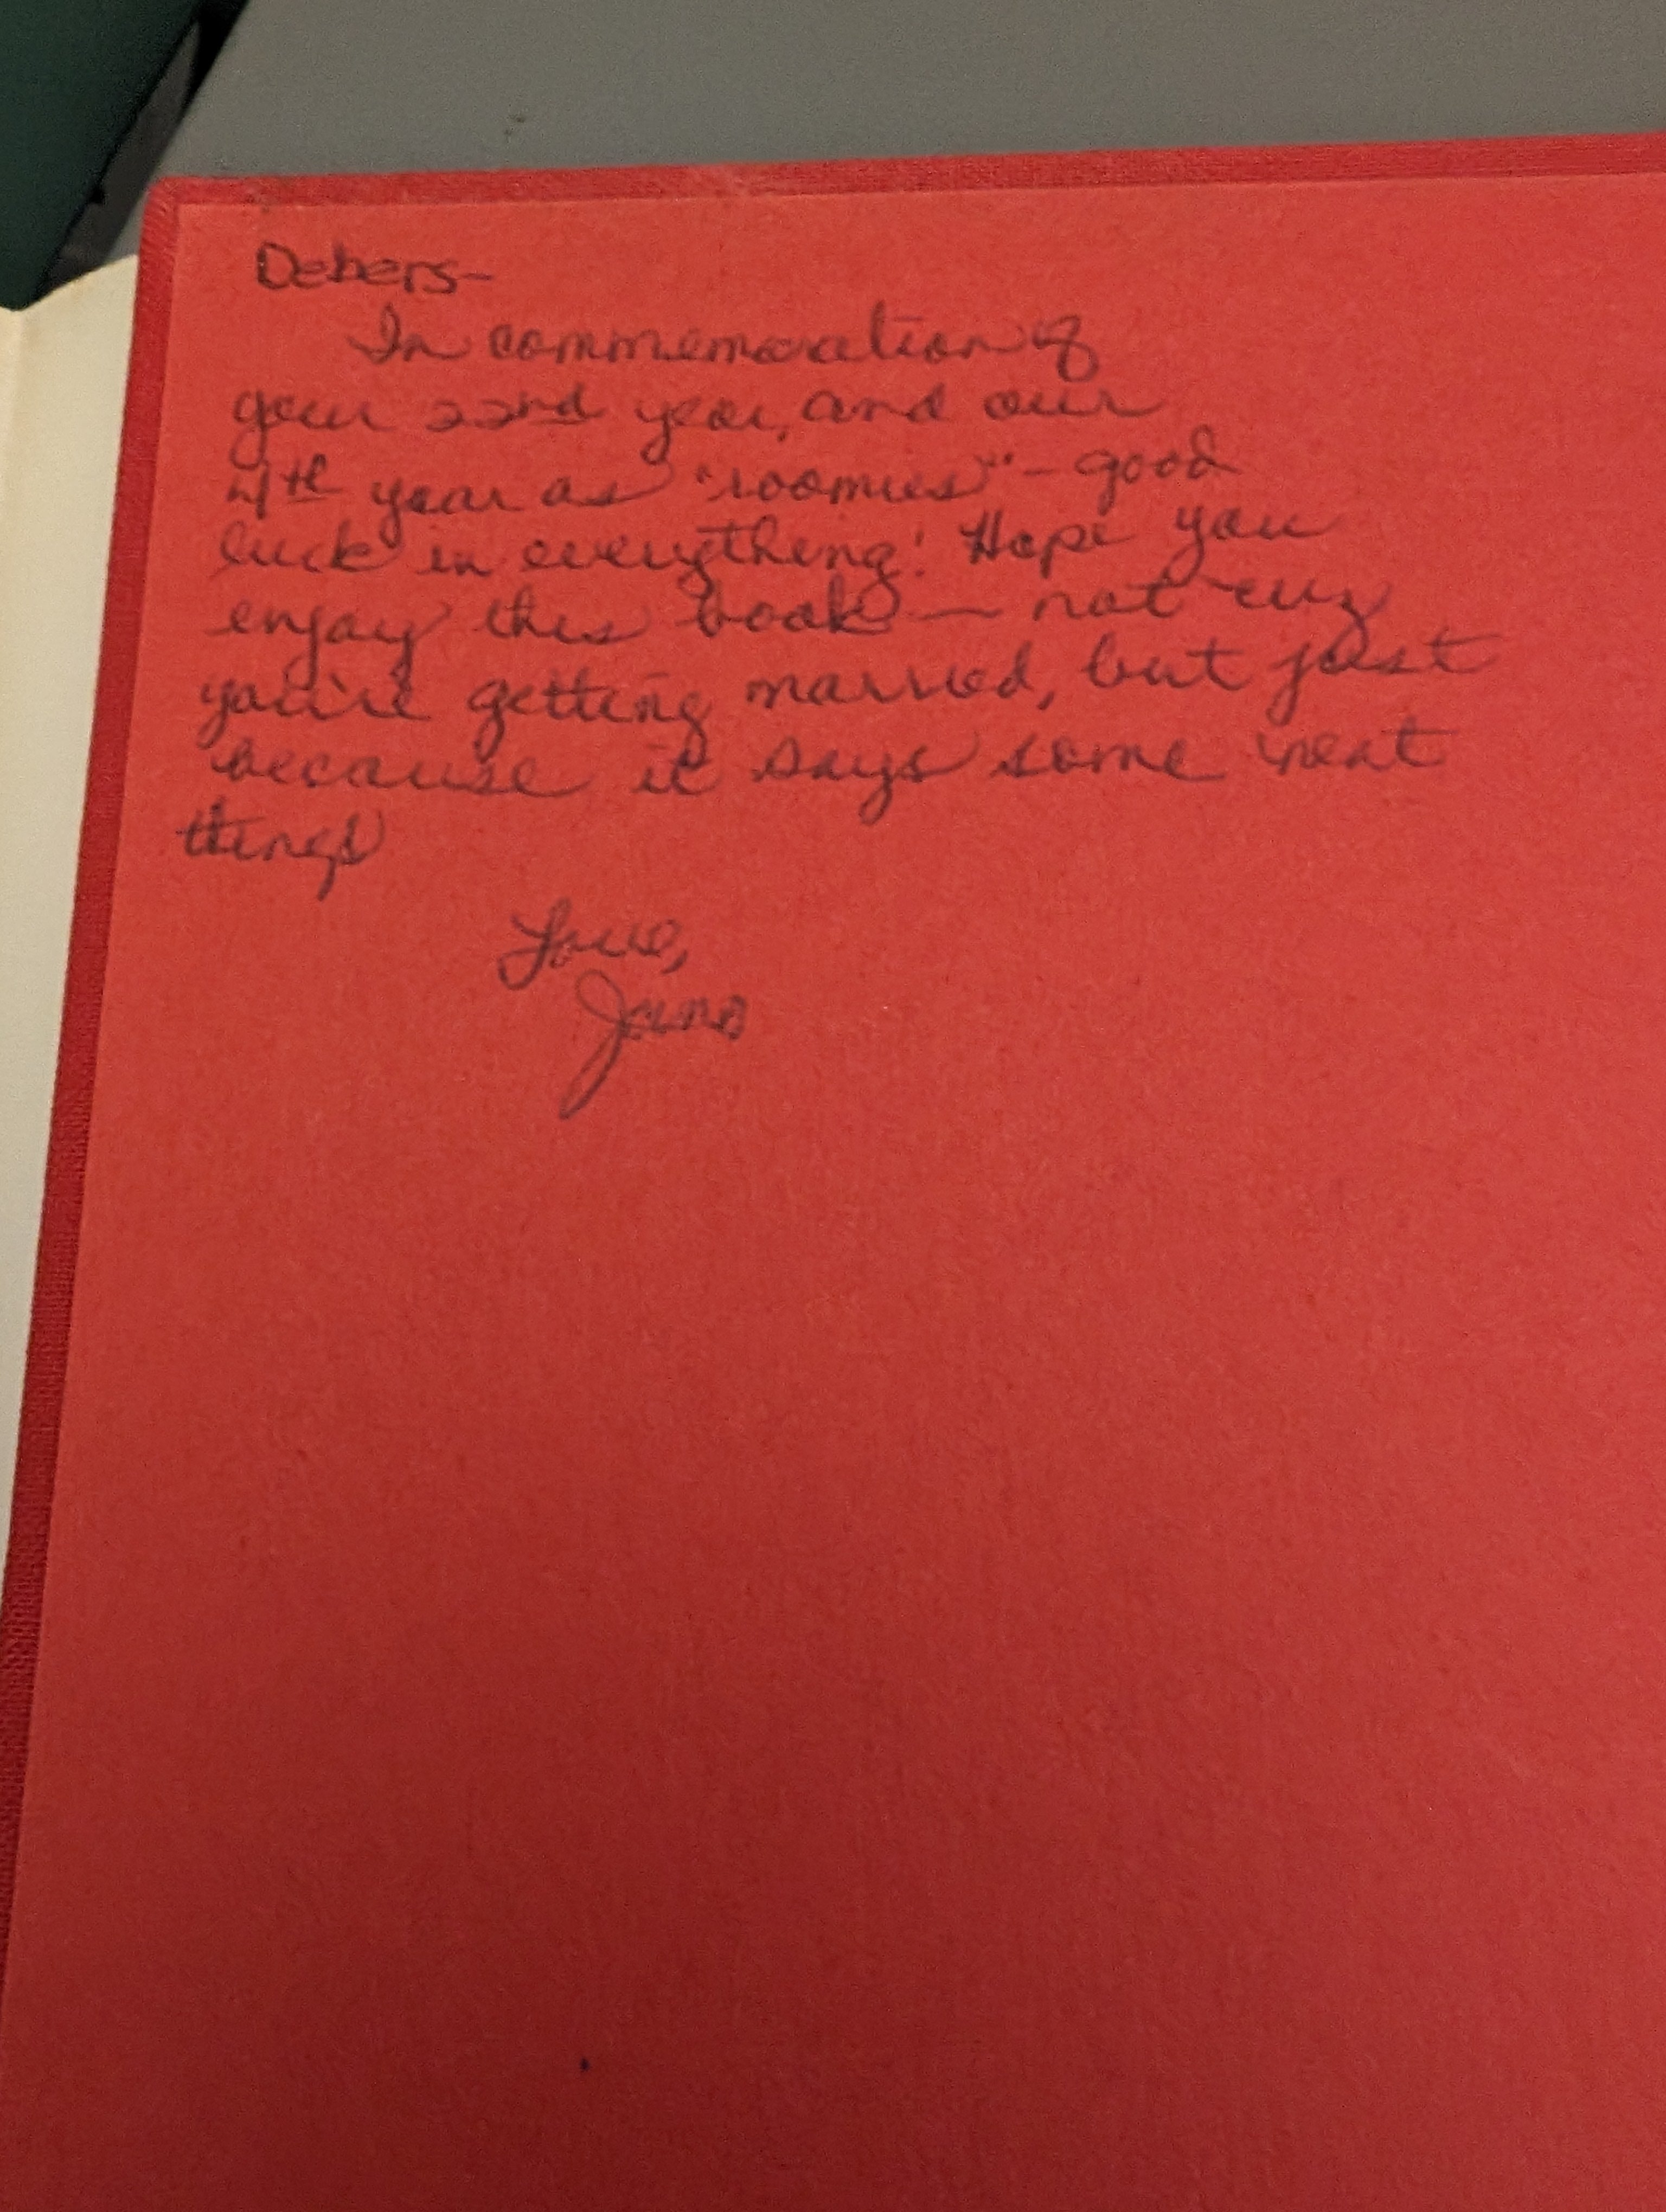 Debers-
In commemoration of
your 22nd year, and our
4th year as "roomies" - good
luck in everything! Hope you
enjoy this book - not cuz
you're getting married, but just
because it says some neat
things
Love,